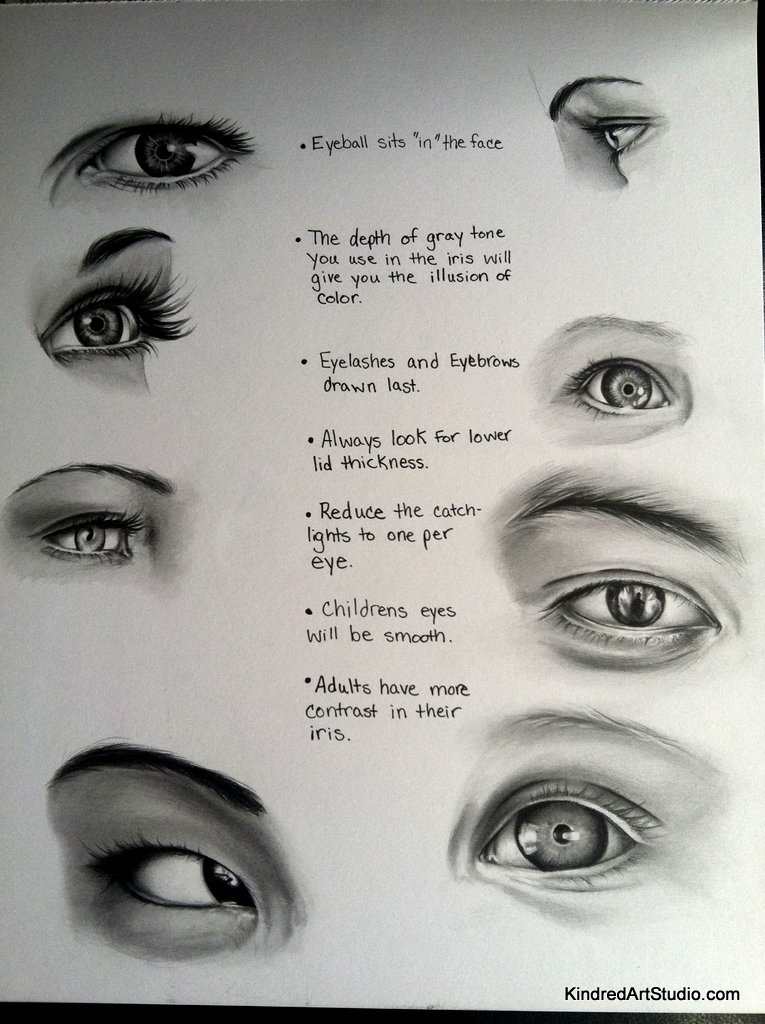 • Eyeball sits "in" the face
• The depth of gray tone
you use in the iris will
give you the illusion of
color.
• Eyelashes and Eyebrows
drawn last.
• Always look for lower
lid thickness.
• Reduce the catch-
lights to one per
eye.
• Childrens eyes
will be smooth.
• Adults have more
contrast in their
iris.
KindredArtStudio.com